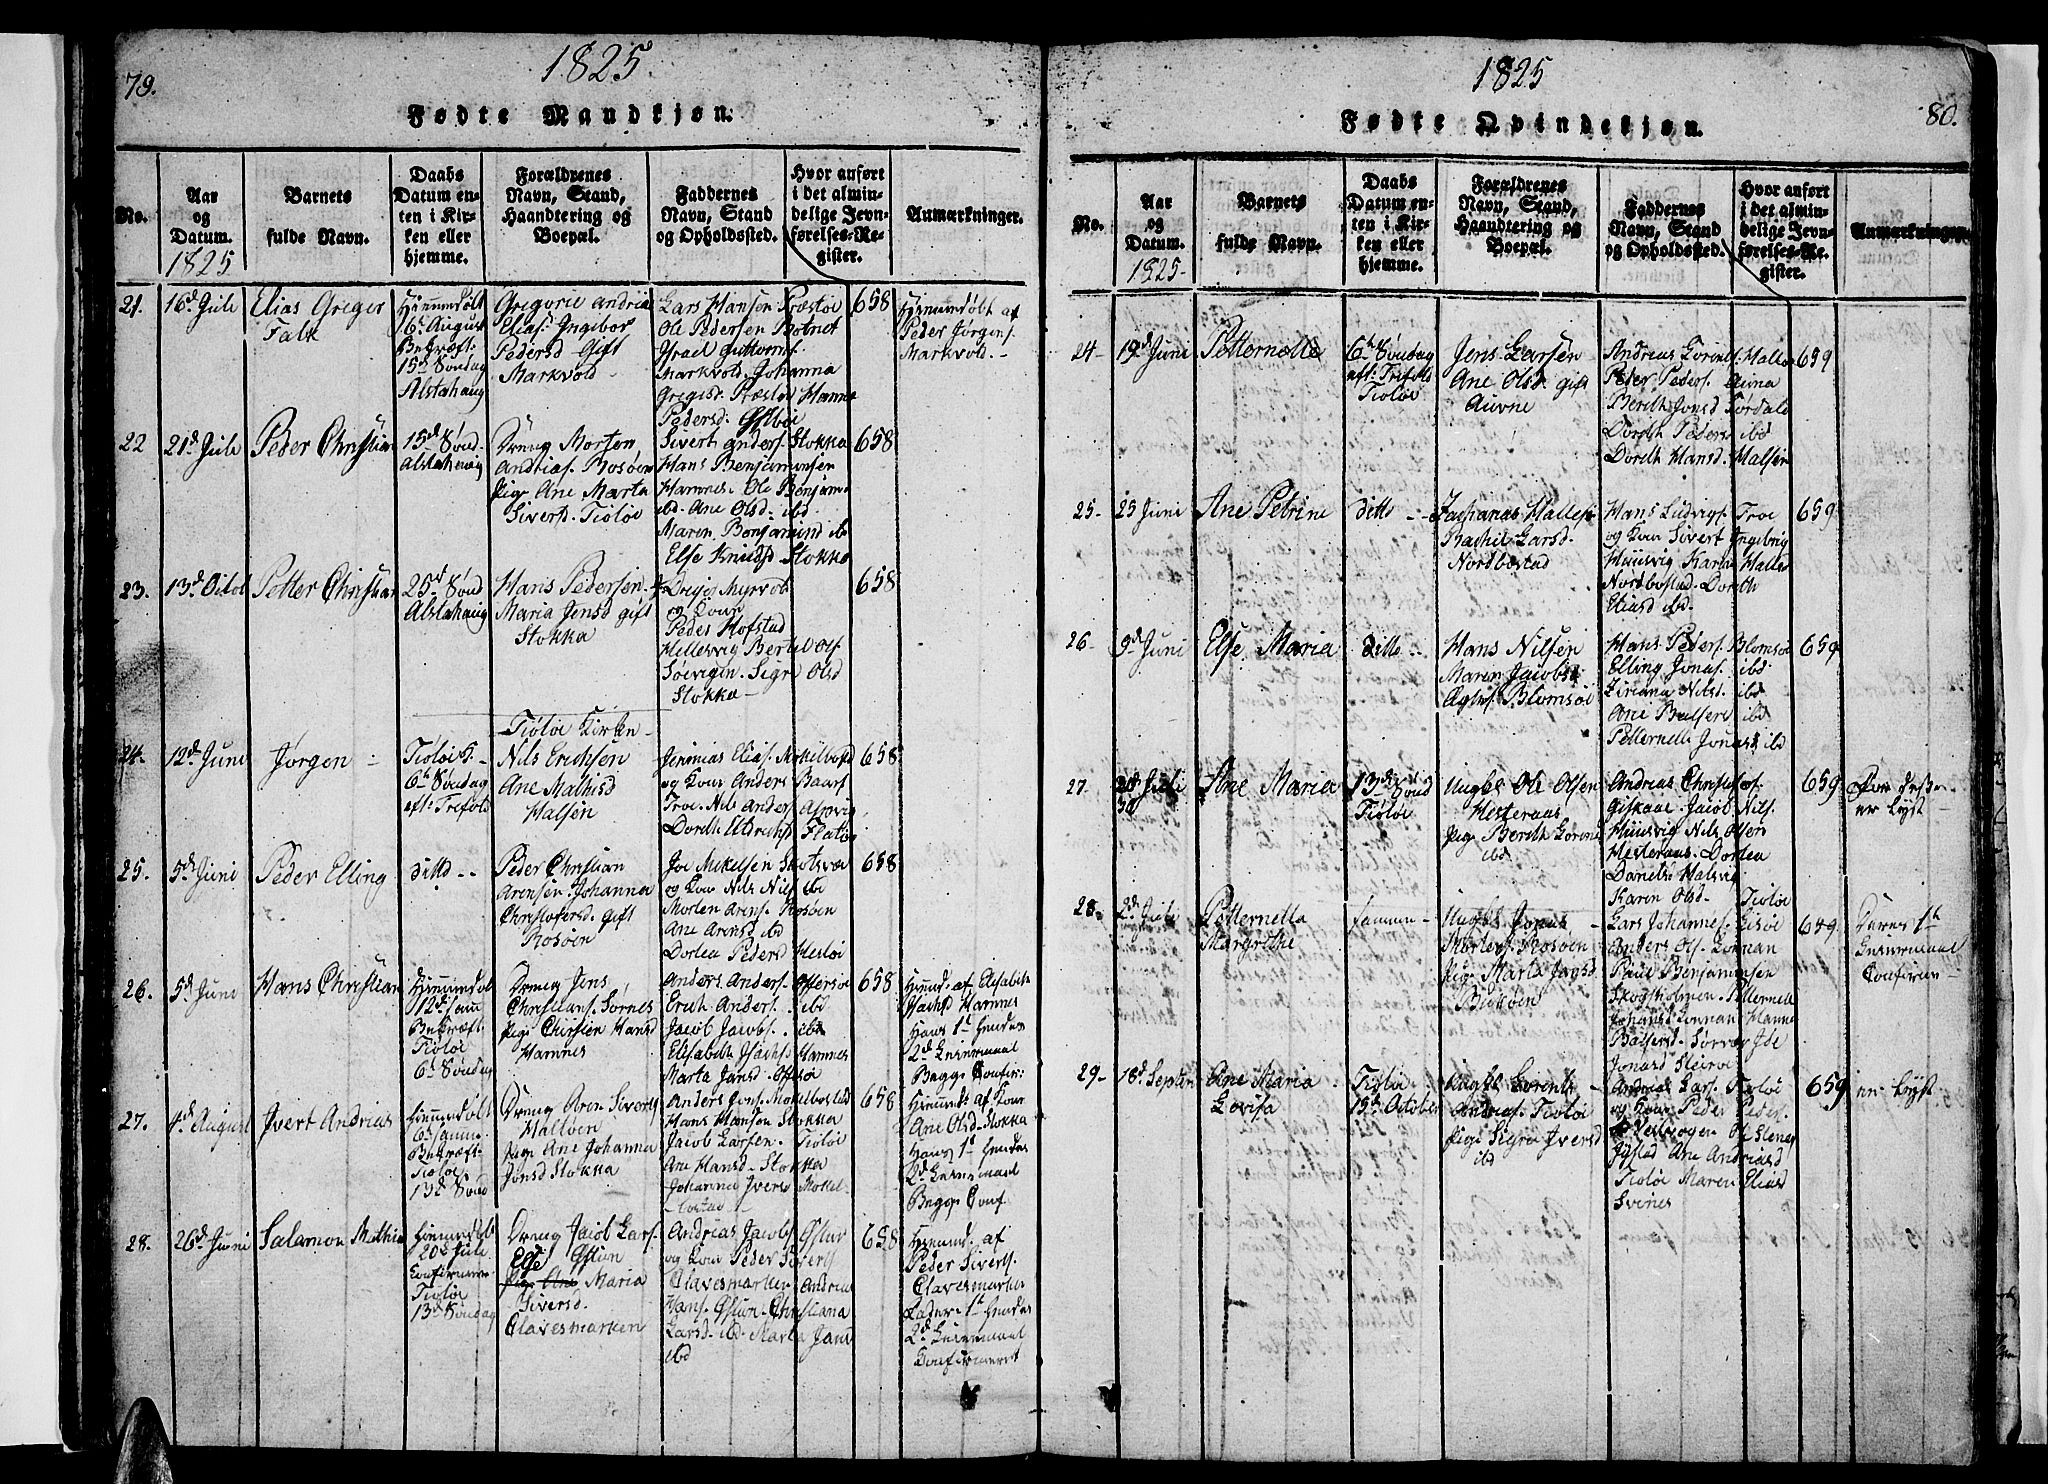 79.
1825.
Fødte Mandkjøn.
No.
Aar
og
Datum.
1825
Barnets
fulde Navn.
Daabs
Datum en-
ten i Kir-
ken eller
hjemme.
Forældrenes
Navn, Stand,
Haandtering og
Boepæl.
Faddernes
Navn, Stand
og Opholdssted.
Hvor anført
i det almin-
delige Jevn-
førelses-Re-
gister.
Anmærkninger.
21.
16d Juli
Elias Greger
Falk
Hiemmedøbt
6t August
Bekræft.
15d Søndag
Alstahaug
Gregorie Andria
Elias. Ingebor
Pedersd. Gift
Markvold
Lars Hansen Præstøe
Ole Pedersen Botnet
Israel Guttorms.
Markvold. Johanna
Gregisd. Præstøe Hanna
Pedersd. Østbøe
658
Hiemmedøbt af
Peder Jørgens.
Markvold.
22
21d Juli
Peder Christian
15d Sønd.
Alstahaug
Dreng Morten
Andrias. Rosøen
Pige Ane Marta
Siversd. Tiøtøe
Sivert Anders. Stokka
Hans Benjaminsen
Hamnes. Ole Benjam.
ibd. Ane Olsd. ibd.
Maren Benjamind ibd
Else Knudsd Stokka
658
23.
13d Octob
Petter Christian
25d Sønd
Alstahaug
Hans Pedersen
Maria Jensd gift
Stokka
og Kone
Peder Hofstad
Hellesvig Bertel Ols.
Søevigen. Sigr Olsd
Stokka
658
Tiøtøe Kirken
24.
12d Juni
Jørgen
Tiøtøe K.
6te Søndag
eft. Trefold
Nils Erichsen
Ane Mathisd
Halsen
Jerimias Elias. Mekelbost
og Kone Anders Baars
Troe. Nils Anders.
Dordth Flatøe
658
25.
5d Juni
Peder Elling
ditto
Peder Christian
Arensen. Johanna
Christofersd. gift
Rosøen
Joe Mekelsen Skotsvær
og Kone Nils Nils. ibd
Morten Arens. Rosøen
Ane Arensd ibd
Dortea Peders Hestøe
658
26.
5d Juni
Hans Christian
Hiemmedøbt
12d samme
Bekræft.
Tiøtøe
6d Søndag
Dreng Jens
Christians. Sørnes
Pige Chirstien Hansd
Hamnes
Anders Anders. Offersøe
Erich Anders. ibd
Jacob Jacobs. ibd
Elisabeth Isachs. Hamnes
Marta Jansd. Offersøe
658
Hiemd. af Elisabeth
Isachsd Hamnes
Hans 1te Hendes
2d Leiermaal
Begge Confir:
27.
4d August
Ivert Andrias
Hiemmedøbt
6d samme
Bekræft.
Tiøtøe
13d Sønd
Dreng Aren Siverts
Halsøen
Pige Ane Johanna
Jonsd Stokka
Anders Jons. Mekelbostad
Hans Hansen Stokka
Jacob Larsen. Tiøtøe
Ane Hansd. Stokka
Johanna Iversd Mekel-
bostad
658
Hiemmedt af Kone
Ane Olsd. Stokka
Hans 1t Hendes
2d Leiermaal
Begge Conf.
28.
26d Juni
Salamon Mathias
Hiemmedøbt
20d Juli
Confirmeret
Tiøtøe
13d Søndag
Dreng Jacob Lars.
Østun
Else
Pige Ane Maria
Siversd.
Olavesmarken
Andrias Jacobs. Østun
og Kone Peder Siverts
Olavesmarken Andrias
Hans. Østun. Christiana
Larsd. ibd. Marta Jansd
ibd
658
Hiemmd. af
Peder Siverts.
Olavesmarken
Faderen 1t Hendes
2d Leiermaal
Confirmeret
1825
Fødte Qvindekjøn.
80.
No.
Aar
og
Datum.
1825.
Barnets
fulde Navn.
Daabs
Datum en-
ten i Kir-
ken eller
hjemme.
Forældrenes
Navn, Stand,
Haandtering og
Boepæl.
Faddernes
Navn, Stand
og Opholdssted.
Hvor anført
i det almin-
delige Jevn-
førelses-Re-
gister.
Anmærkninger
24
19d Juni
Petternelle
6te Søndag
eft: Trefold
Tiøtøe
Jens Larsen
Ane Olsd. gift
Auvne
Andreas Lorints. Halsøe
Peder Peders. Auvna
Berith Jonsd Førdale
Dordth Peders ibd
Dordth Hansd. Halsen
659
25
23 Juni
Ane Petrine
ditto
Zacharias Halles.
Rachel Larsd.
Nordbostad
Hans Ludvigs. Troe
og Kone Sivert Ingebrig
Huusvig Karn Halles
Nordbostad. Dordth
Eliasd ibd.
659
26
9d Juni
Else Maria
ditto
Hans Nilsen
Maren Jacobsd
Ægtef. Blomsøe
Hans Peders. Blomsøe
Elling Jonas. ibd
Ziriana Nilsd. ibd
Ane ibd
Petternelle Jonasd. ibd
659
27.
28 Juli
30
Ane Maria
13d Sønd
Tiøtøe
Ungkl Ole Olsen
Hesteraas
Pige Berith Lorents
ibd
Andreas Christofs.
Giskaae. Jacob Nils.
Huusvig Nils Olsen
Hesteraas. Dortea
Danielsd Halsvig
Karen Olsd. Tiøtøe
659
er Lyst
28.
2d Juli
Petternella
Margrethe
samme
Ungkl Jonas
Mortens. Rosøen
Pige Marta Jansd
Buksøen
Lars Johannes. Lisøe
Anders Ols. Lonnan
Poul Benjaminsen
Skogsholmen. Petternelle
Johansd Lonnan Hanna
Balsersd. Sorvær Ide
Jonasd Sleivøe
649
Deres 1te
Leiermaal
Confirm
29
18d Septem
Ane Maria
Lovisa
Tiøtøe
15de October
Ungkl Lorents
Andrias. Tiøtøe
Pige Sigra Iversd
ibd
Andreas Lars. Tiøtøe
og Kone Peder Peders.
Vestvogen
Igstad Ane Andriasd
Tiøtøe Maren Eliasd
Svines
659
er Lyst